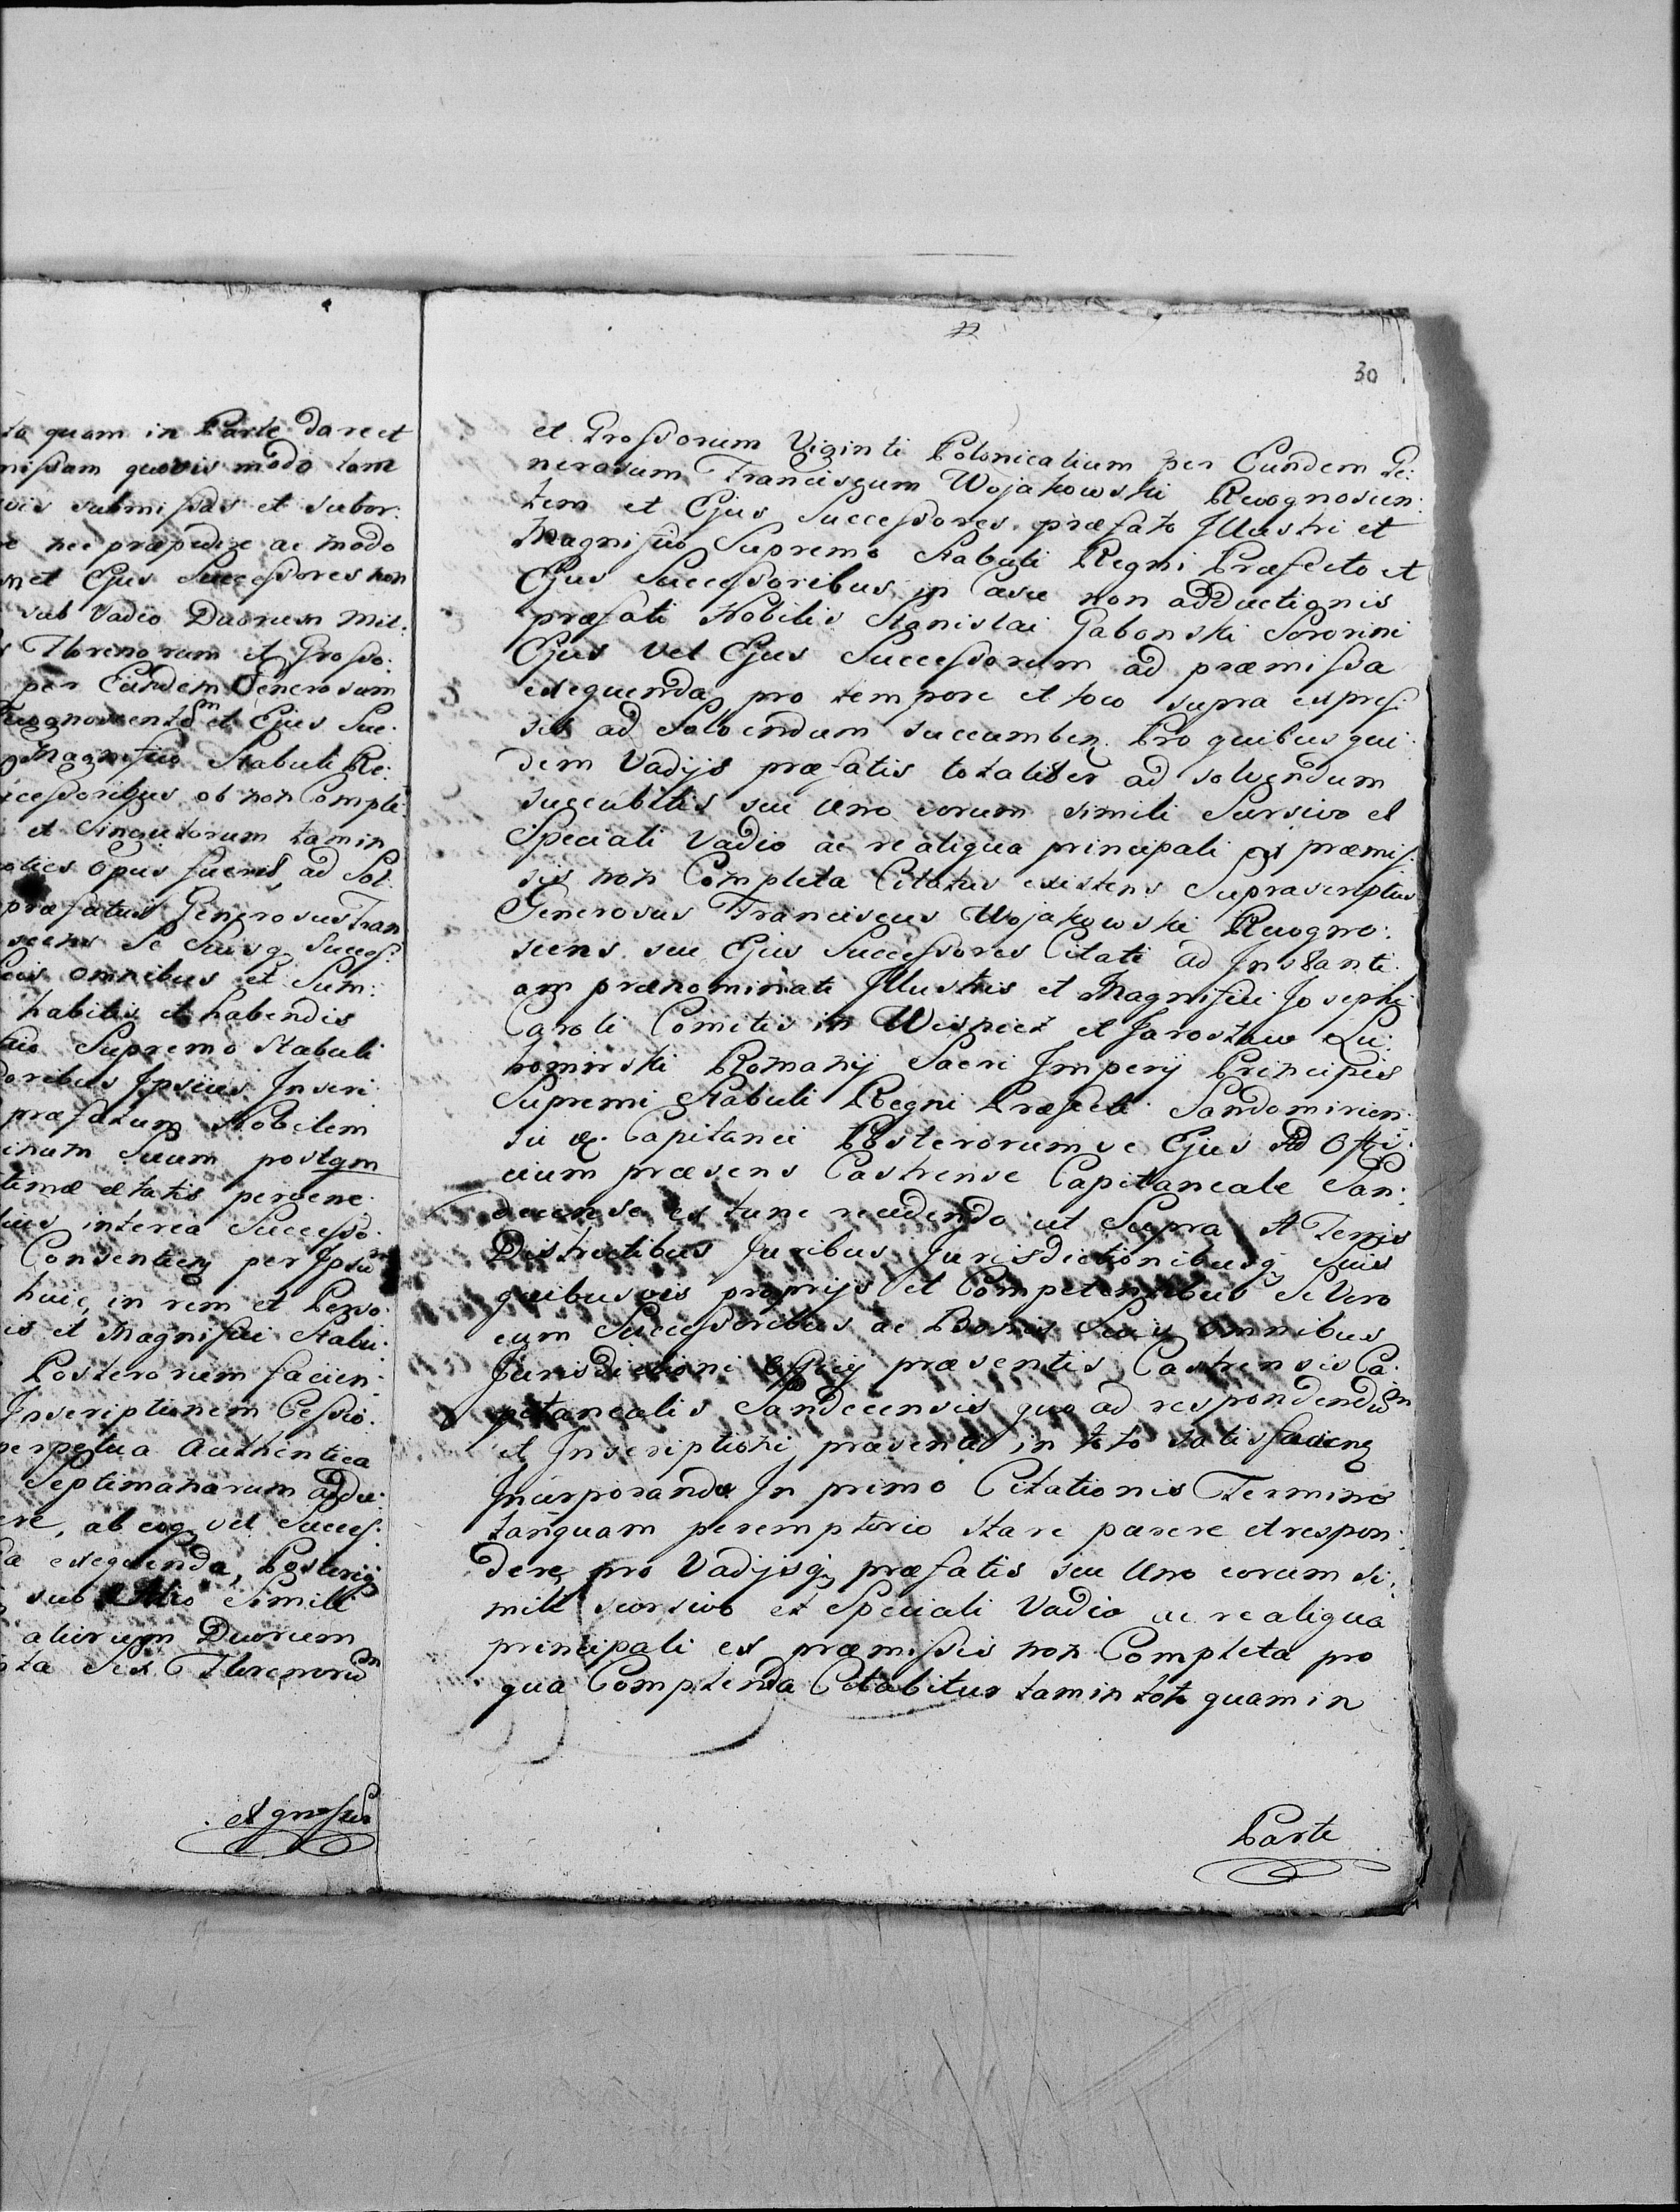 ta quam in Parte dare et
missam quovis modo tam
vis submissas et subor:
nec præpedire ac modo
et Ejus Successores non
sub Vadio Duorum Mil:
Florenorum et Grosso:
per Eundem Generosum
Recognoscentem et Ejus Suc:
Magnifico Stabuli Re:
cessoribus ob non Comple:
et Singulorum tam in
oties Opus fuerit, ad Sol:
præfatus Generosus Fran
scens Se Suosq Succes:
omnibus et Sum:
habitis et habendis
Supremo Stabuli
soribus Ipsius Inscri
præfatum Nobilem
inum Suum postqm
timæ ætatis pervene:
interea Successo:
Consentien per Ipsum
huic, in rem et Perso:
is et Magnifici Stabu:
Posterorum facien:
Inscriptionem Cessio:
perpetua Authentica
Septimanarum addu:
re, ab eoq vel Succes:
exequenda, Posteriq
sub Simili
aliorum Duorum
ta Sex Florenorum
et grossor
30
et Grossorum Viginti Polonicalium per Eundem Ge:
nerosum Franciscum Wojakowski Recognoscen:
tem et Ejus Successores præfato Illustri et
Magnifico Supremo Stabuli Regni Præfecto et
Ejus Successoribus in Casu non adductionis
præfati Nobilis Stanislai Gabonski Sororini
Ejus vel Ejus Successorum ad præmissa
exequenda, pro tempore et loco supra expres:
sis ad Solvendum succumben. Pro quibus qui:
dem Vadijs præfatis totaliter ad solvendum
sucubitis seu Uno eorum simili Seorsivo et
Speciali Vadio ac re aliqua principali ex præmis:
sis non Completa Citatus existens Suprascriptus
Generosus Franciscus Wojakowski Recogno:
scens seu Ejus Successores Citati ad Instanti:
am prænominati Illustris et Magnifici Josephi
Caroli Comitis in Wisnicz et Jaroslaw Lu:
bomirski Romanij Sacri Imperij Principis
Supremi Stabuli Regni Præfecti Sandomirien:
sis &. Capitanei Posterorumve Ejus Ad Offi:
cium præsens Castrense Capitaneale San:
decense ex tunc recedendo ut Supra A Terris
Districtibus Juribus Jurisdictionibusq suis
quibusvis proprijs et Competentibus Se Vero
cum Successoribus ac Bonis Suis omnibus
Jurisdictioni Officij præsentis Castrensis Ca:
pitanealis Sandecensis quo ad respondendum
et Inscriptioni præsenti in toto satisfacienq
Incorporando In primo Citationis Termino
tanquam peremptorio stare parere et respon:
dere, pro Vadijsq præfatis seu Uno eorum si:
mili seorsivo et Speciali Vadio ac re aliqua
principali ex præmissis non Completa pro
qua Complenda Citabitur tam in toto quam in
Parte